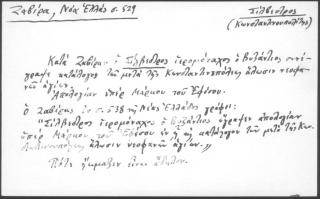 Ζαβίρα, Νέα Ἑλλάς σ. 529
Σίλβεστρος
(Κωνσταντινουπολίτης)
Κατὰ Ζαβίραν ὁ Σίλβεστρος ἱερομόναχος ὁ Βυζάντιος συνέ-
γραψε κατάλογον τῶν μετὰ τῆς Κωνσταντινουπόλεως ἅλωσιν νεοφα-
νῶν ἁγίων.
Ἀπολογίαν ὑπὲρ Μάρκου τοῦ Ἐφέσου.
Ὁ Ζαβίρας ἐν σ. 538 τῆς Νέας Ἑλλάδος γράφει:
"Σίλβεστρος ἱερομόναχος ὁ Βυζάντιος ἔγραψεν ἀπολογίαν
ὑπὲρ Μάρκου τοῦ Ἐφέσου ἐν ᾗ καὶ κατάλογον τῶν μετὰ τῆς Κων-
σταντινουπόλεως ἅλωσιν νεοφανῶν ἁγίων.»
Πότε ἤκμαζεν εἶναι ἄδηλον.